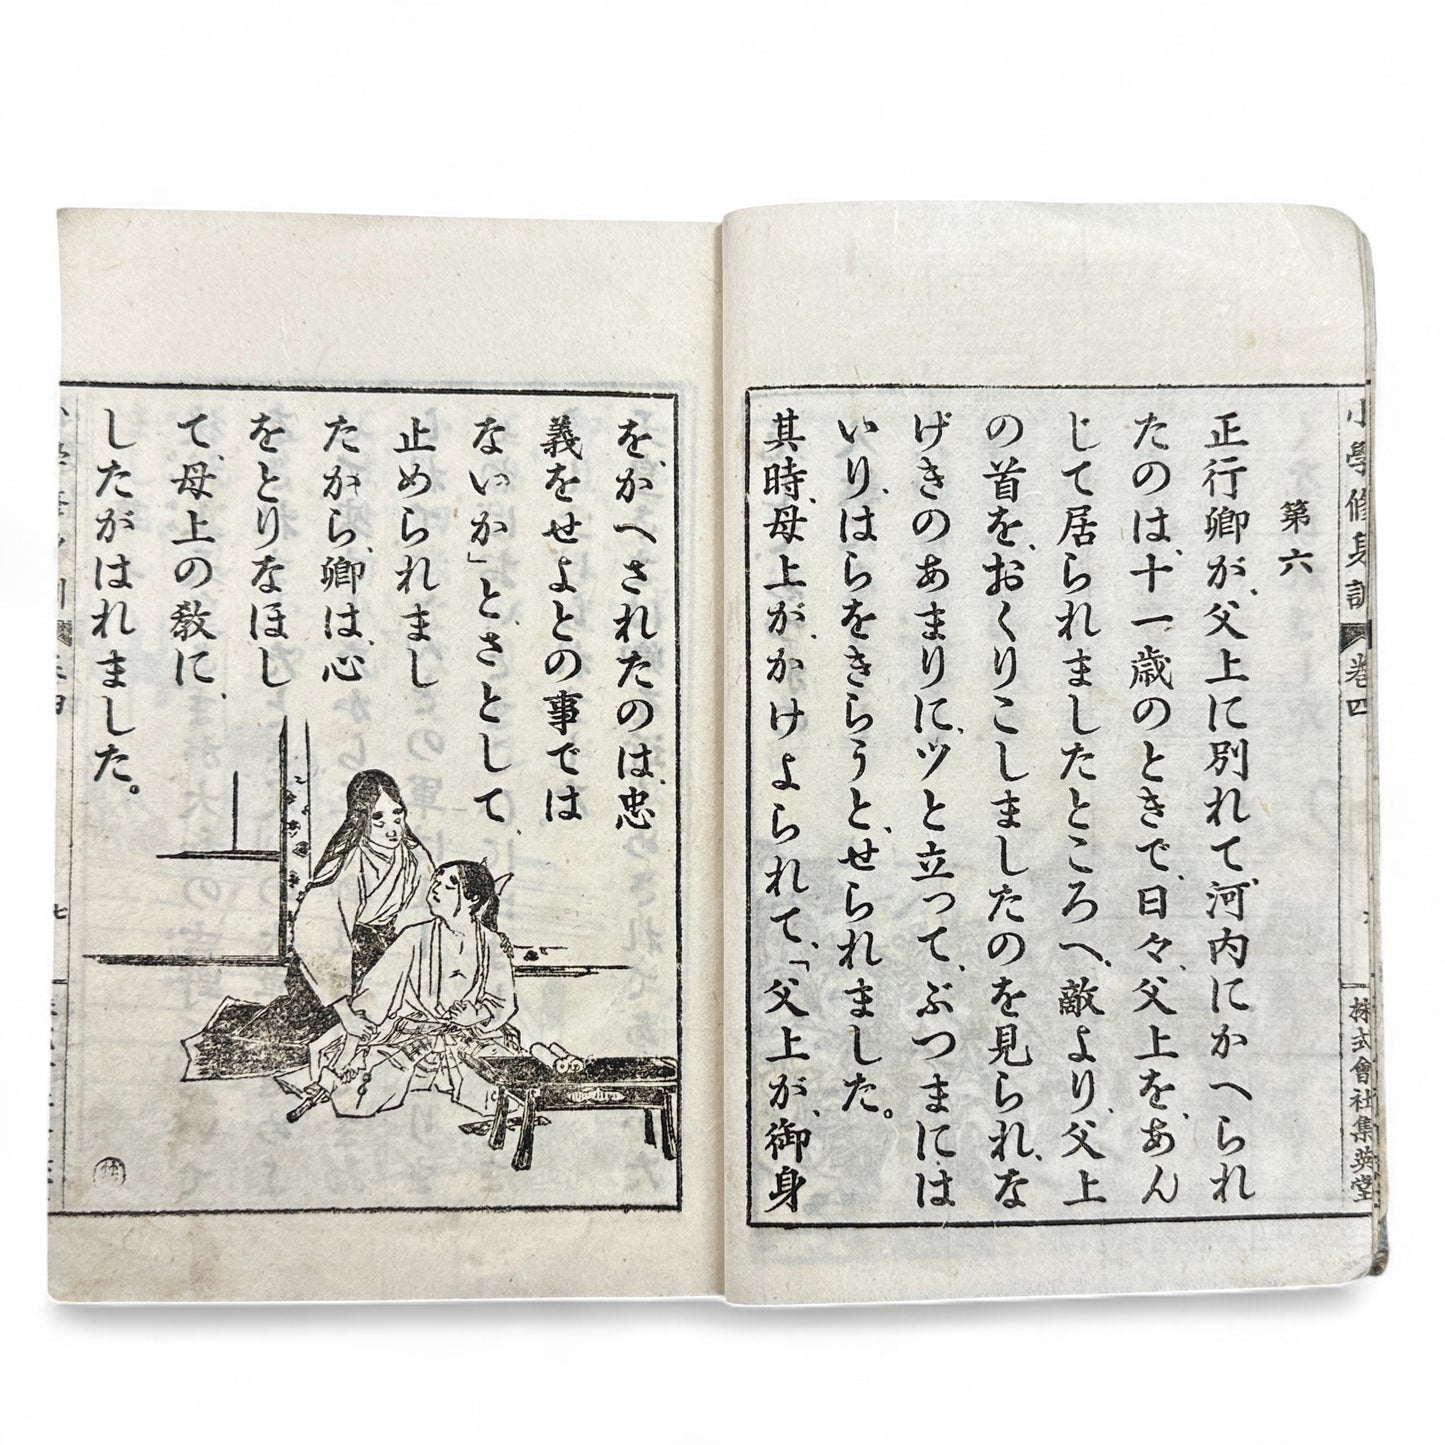 小學修身訓 卷四
株式會社集英堂
第六
正行卿が、父上に別れて、河内にかへられ
たのは、十一歳のときで、日々、父上を、あん
じて居られましたところへ、敵より、父上
の首を、おくりこしましたのを見られ、な
げきのあまりに、ツと立って、ぶつまには
いり、はらをきらうと、せられました。
其時、母上が、かけよられて、「父上が、御身
を、かへされたのは、忠
義をせよとの事では
ないか」と、さとして、
止められまし
たから、卿は、心
をとりなほし
て、母上の敎に、
したがはれました。